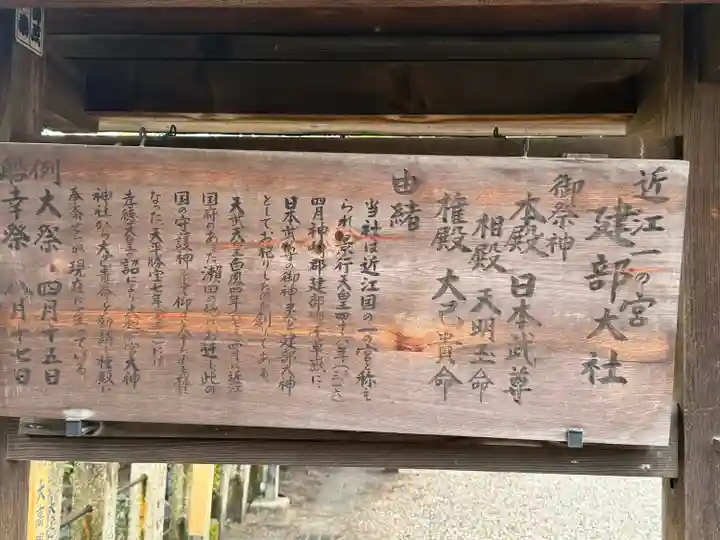 近江一の宮
建部大社
御祭神
本殿 日本武尊
相殿 天明玉命
権殿 大己貴命
由緒
当社は近江国の一の宮と称え
られ 景行天皇四十六年(三一六)
四月神崎郡建部
日本武尊の御神霊を建部大神
としてお祀りしたのが創
天武天皇白鳳四年 近江
国府のあった瀬田の地にお遷し此の
国の守護神として
なった 天平勝宝七年 には
孝徳天皇 詔により 大神
神社から大己貴命を勧請し権殿に
奉斎 現在に至っている
例大祭 四月十五日
船幸祭 八月十七日